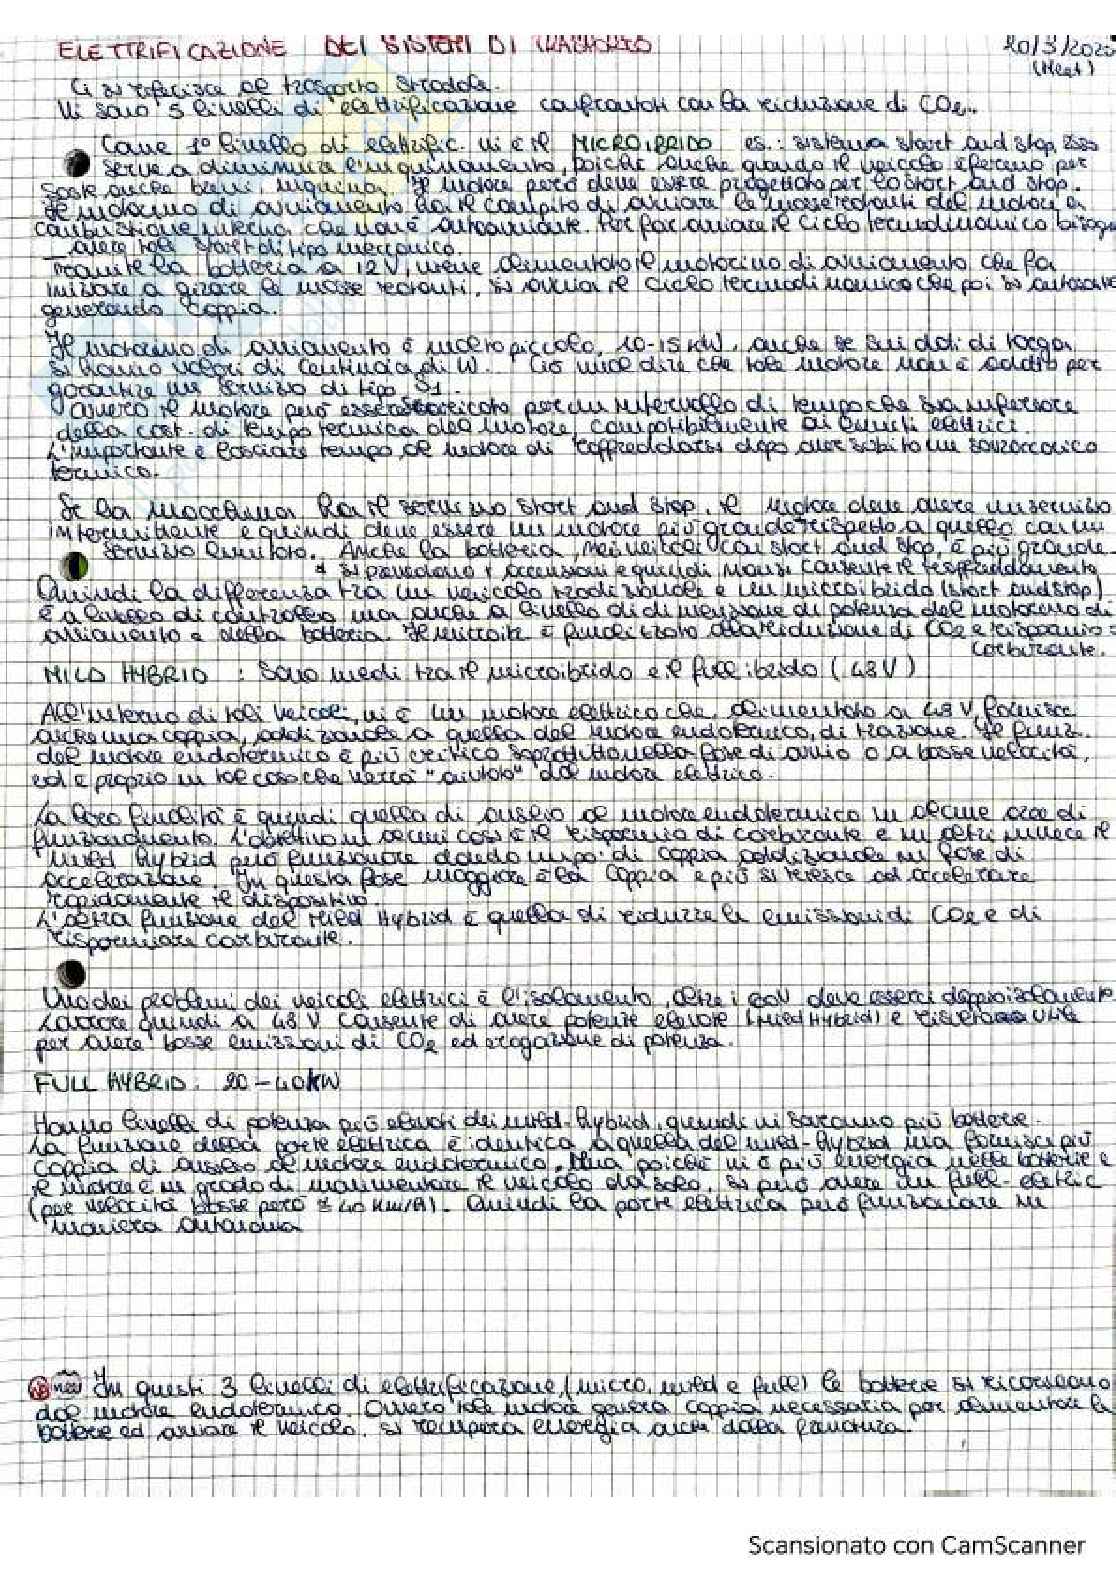 ELETTRIFICAZIONE DEI SISTEMI DI TRASPORTO 20/3/2020
(Meet)
Ci si riferisce al trasporto stradale.
Vi sono 5 livelli di elettrificazione confrontati con la riduzione di CO2..
Come 1° livello di elettrific. vi è il MICROIBRIDO es.: sistema start and stop, esso
serve a diminuire l'inquinamento, poiché anche quando il veicolo è fermo per
soste anche brevi inquina. Il motore però deve essere progettato per lo start and stop.
Il motorino di avviamento ha il compito di avviare le masse rotanti del motore a
combustione interna che non è autoavviante. Per far avviare il ciclo termodinamico bisogna
avere tale start di tipo meccanico.
Tramite la batteria a 12V, viene alimentato il motorino di avviamento che fa
iniziare a girare le masse rotanti, si avvia il ciclo termodinamico che poi si autosostiene
generando coppia.
Il motorino di avviamento è molto piccolo, 10-15 kW, anche se sui dati di targa
si hanno valori di centinaia di W. Ciò vuol dire che tale motore non è adatto per
garantire un servizio di tipo S1.
Ovvero il motore può essere sovraccaricato per un intervallo di tempo che sia inferiore
della cost. di tempo termica del motore, compatibilmente ai limiti elettrici.
L'importante è lasciare tempo al motore di raffreddarsi dopo aver subito un sovraccarico
termico.
Se la macchina ha il servizio start and stop, il motore deve avere un servizio
intermittente e quindi deve essere un motore più grande rispetto a quello con un
servizio limitato. Anche la batteria, nei veicoli con start and stop, è più grande
si prevedono + accensioni e quindi non si consente il raffreddamento
Quindi la differenza tra un veicolo tradizionale e un microibrido (start and stop)
è a livello di controllo ma anche a livello di dimensione di potenza del motorino di
avviamento e della batteria. Il microib. è finalizzato alla riduzione di CO2 e risparmio
carburante.
MILD HYBRID : Sono medi tra il microibrido e il full ibrido (48V)
All'interno di tali veicoli, vi è un motore elettrico che, alimentato a 48 V, fornisce
anche una coppia, addizionale a quella del motore endotermico, di trazione. Il funz.
del motore endotermico è più critico soprattutto nella fase di avvio o a basse velocità,
ed è proprio in tal caso che verrà "aiutato" dal motore elettrico.
La loro finalità è quindi quella di ausilio al motore endotermico in alcune aree di
funzionamento. L'obiettivo in alcuni casi è il risparmio di carburante e in altri invece il
mild hybrid può funzionare dando un po' di coppia addizionale in fase di
accelerazione. In questa fase maggiore è la coppia e più si riesce ad accelerare
rapidamente il dispositivo.
L'altra funzione del Mild Hybrid è quella di ridurre le emissioni di CO2 e di
risparmiare carburante.
Uno dei problemi dei veicoli elettrici è l'isolamento, oltre i 60V deve esserci doppio isolamento
Lavorare quindi a 48 V consente di avere potenze elevate (Mild Hybrid) e
per avere basse emissioni di CO2 ed erogazione di potenza.
FULL HYBRID: 20-40kW
Hanno livelli di potenza più elevati dei mild-hybrid, quindi vi saranno più batterie.
La funzione della parte elettrica è identica a quella del mild-hybrid ma fornisce più
coppia di ausilio al motore endotermico. Ma poiché vi è più energia nelle batterie e
il motore è in grado di movimentare il veicolo da solo, si può avere un full-eletric
(per velocità basse però ≤ 40 km/h). Quindi la parte elettrica può funzionare in
maniera autonoma
NB In questi 3 livelli di elettrificazione, (micro, mild e full) le batterie si ricaricano
dal motore endotermico. Ovvero tale motore genera coppia necessaria per alimentare la
batterie ed avviare il veicolo. Si recupera energia anche dalla frenatura.
Scansionato con CamScanner